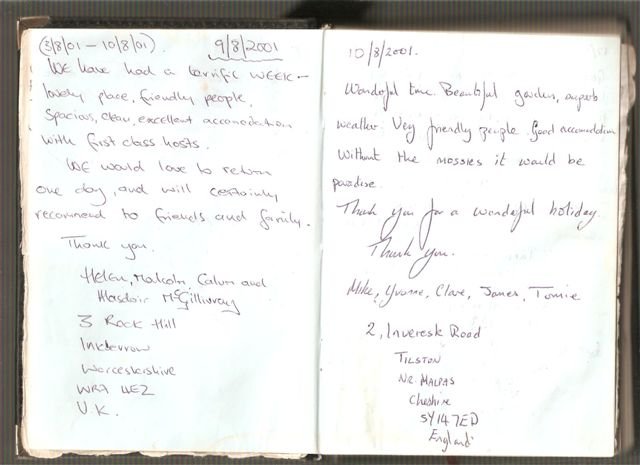 (3/8/01 – 10/8/01). 9/8/2001
WE have had a terrific WEEK –
lovely place, friendly people,
Spacious, clean, excellent accomodation
with first class hosts.
WE would love to return
one day, and will certainly
recommend to friends and family.
Thank you.
Helen, Malcolm, Calum and
Alasdair McGillivray
3 Rock Hill
Inkberrow
Worcestershire
WR7 4EZ
U.K.
10/8/2001.
Wonderful time. Beautiful garden, superb
weather. Very friendly people. Good accomodation
Without the mossies it would be
paradise.
Thank you for a wonderful holiday.
Thank you.
Mike, Yvonne, Clare, James, Tomie
2, Inveresk Road
TILSTON
NR. MALPAS
Cheshire
SY14 7ED
England